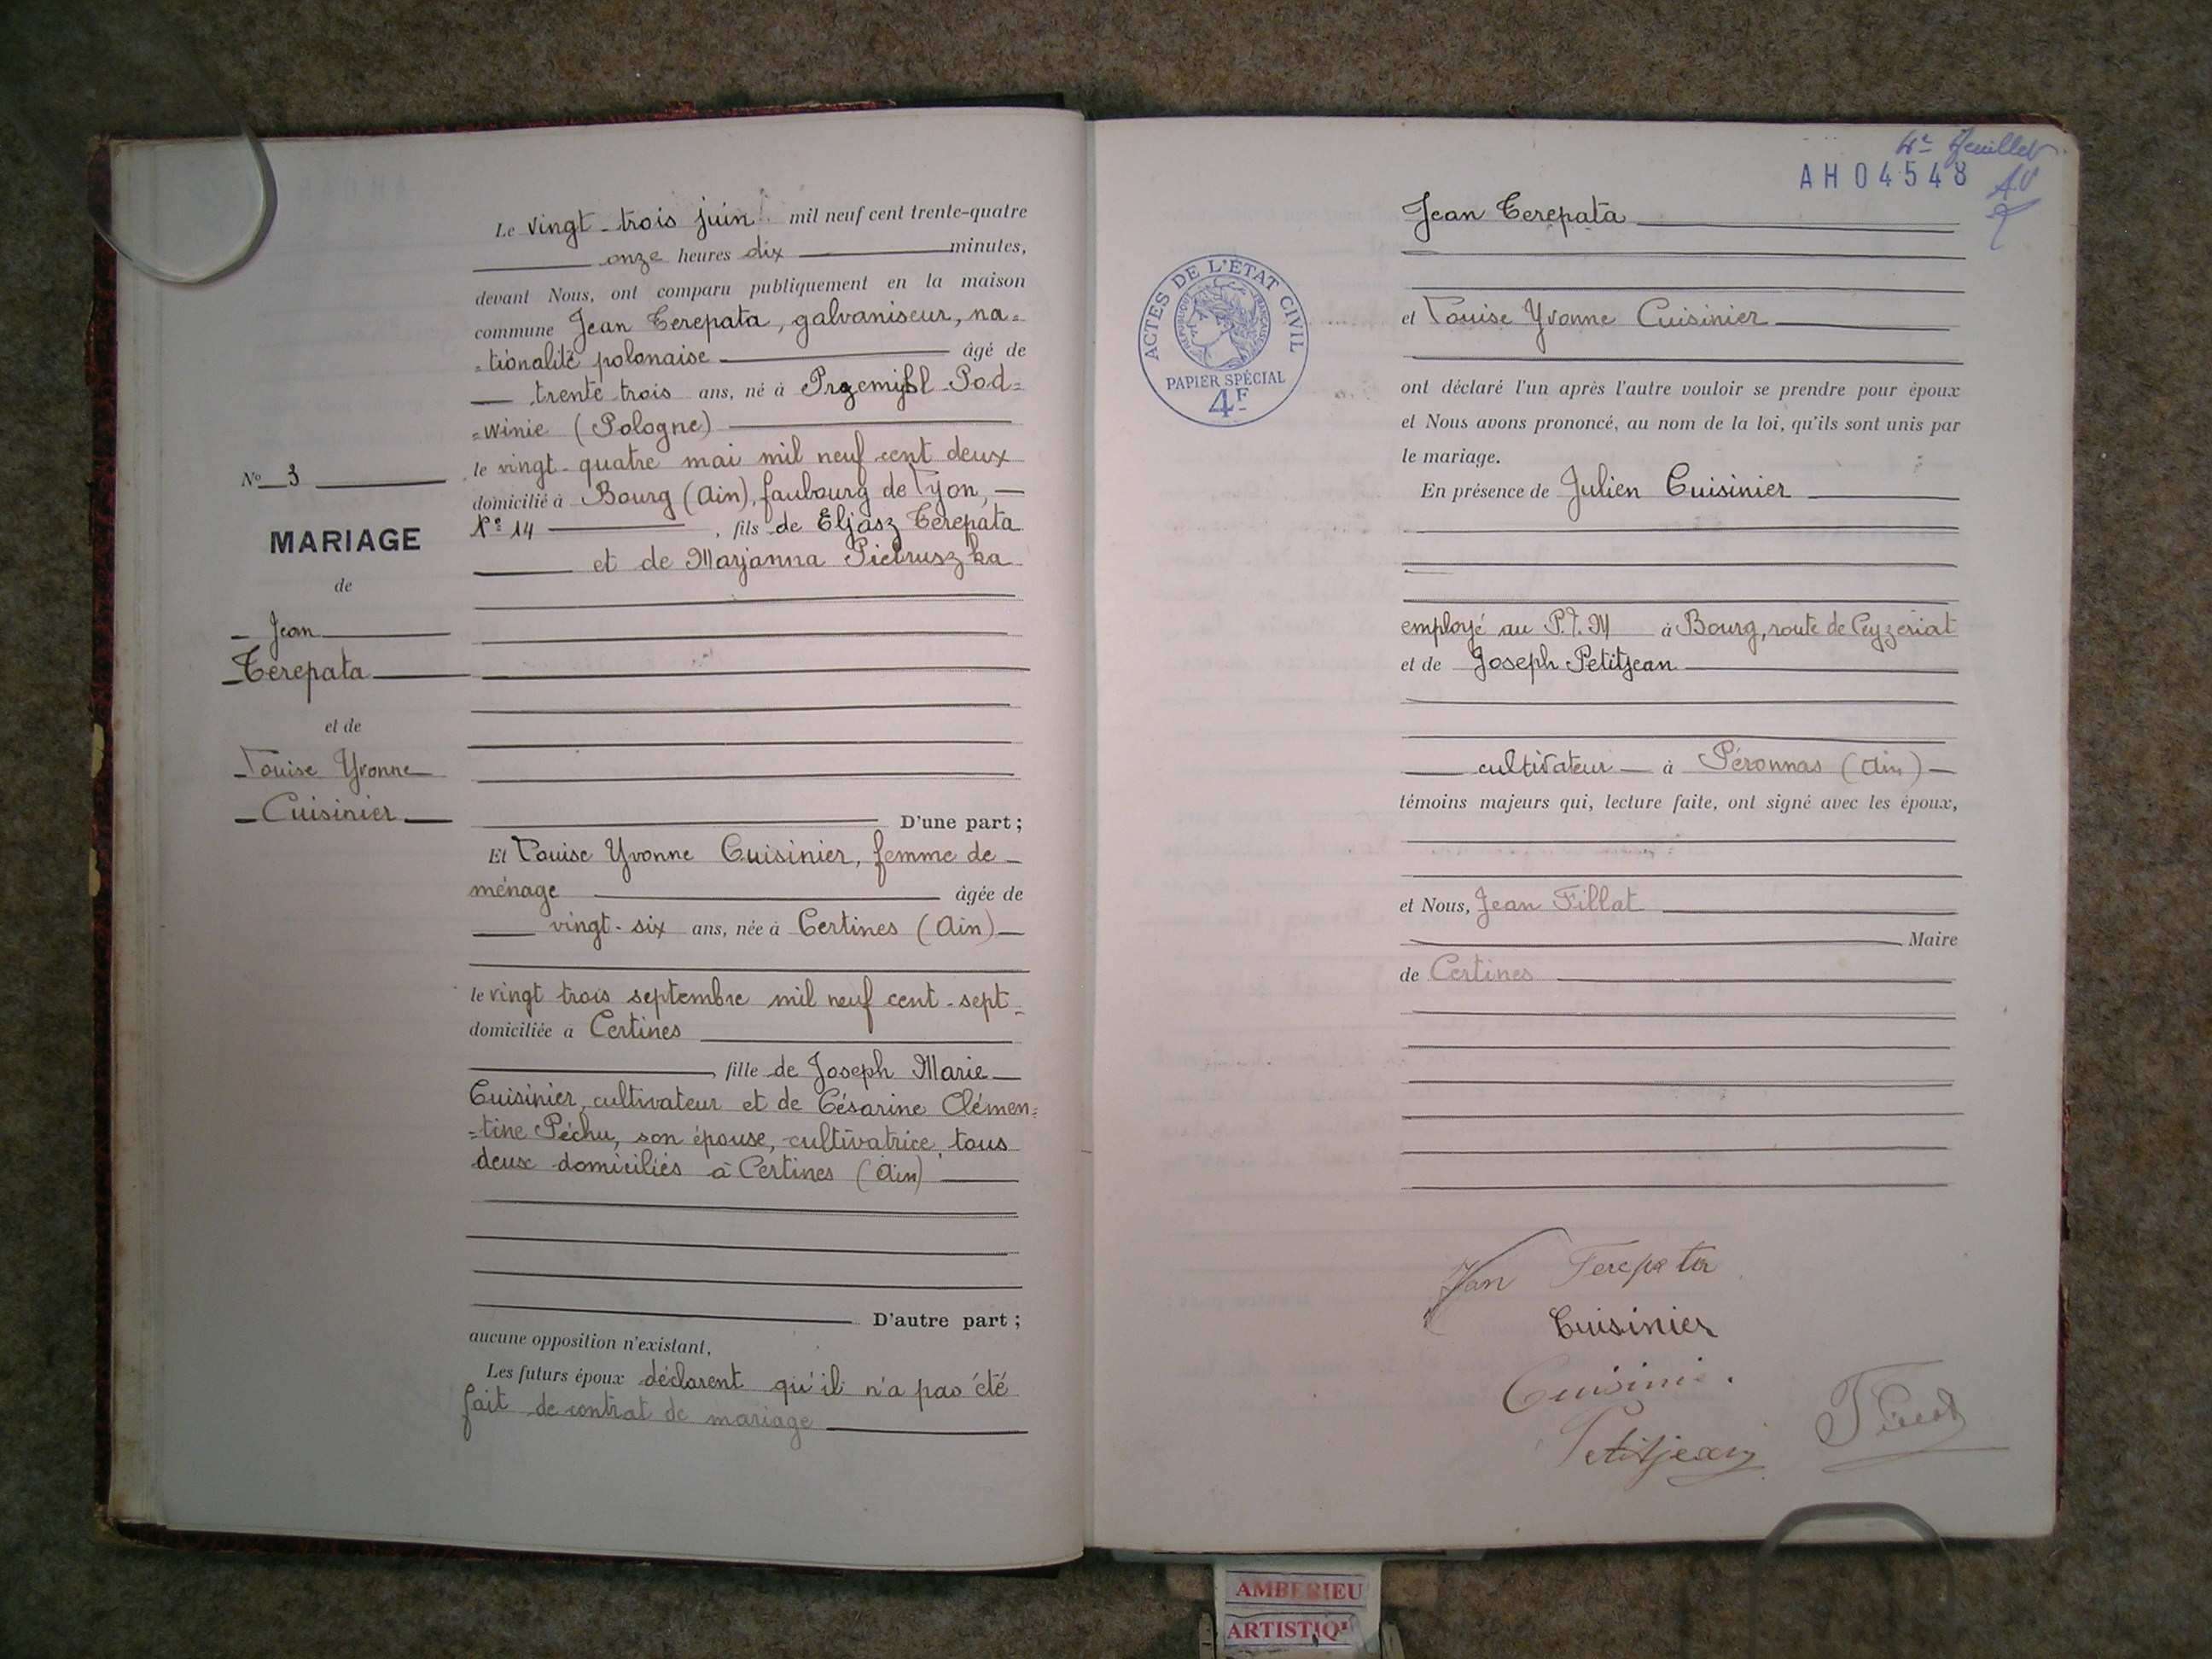 Le vingt-trois juin mil neuf cent trente-quatre
onze heures dix minutes,
devant Nous, ont comparu publiquement en la maison
commune Jean Terepata, galvaniseur, na=
=tionalité polonaise âgé de
trente trois ans, né à Przemysl Pod=
=winie (Pologne)
le vingt-quatre mai mil neuf cent deux
domicilié à Bourg (Ain), faubourg de Lyon,
N° 14, fils de Eljasz Terepata
et de Marjanna Pietruszka
D'une part ;
Et Louise Yvonne Cuisinier, femme de
ménage âgée de
vingt-six ans, née à Certines (Ain)
le vingt trois septembre mil neuf cent-sept
domiciliée à Certines
, fille de Joseph Marie
Cuisinier, cultivateur et de Césarine Clémen=
=tine Péchu, son épouse, cultivatrice, tous
deux domiciliés à Certines (Ain)
D'autre part ;
aucune opposition n'existant,
Les futurs époux déclarent qu'il n'a pas été
fait de contrat de mariage
N° 3
MARIAGE
de
Jean
Terepata
et de
Louise Yvonne
Cuisinier
4e feuillet
AH04548
ACTES DE L'ÉTAT CIVIL
RÉPUBLIQUE FRANÇAISE
PAPIER SPÉCIAL
4F
Jean Terepata
et Louise Yvonne Cuisinier
ont déclaré l'un après l'autre vouloir se prendre pour époux
et Nous avons prononcé, au nom de la loi, qu'ils sont unis par
le mariage.
En présence de Julien Cuisinier
employé au P.L.M à Bourg, route de Ceyzériat
et de Joseph Petitjean
cultivateur à Péronnas (Ain)
témoins majeurs qui, lecture faite, ont signé avec les époux,
et Nous, Jean Fillat
Maire
de Certines
Jan Terepata
Cuisinier
Cuisinie
Petitjean
AMBERIEU
ARTISTIQ